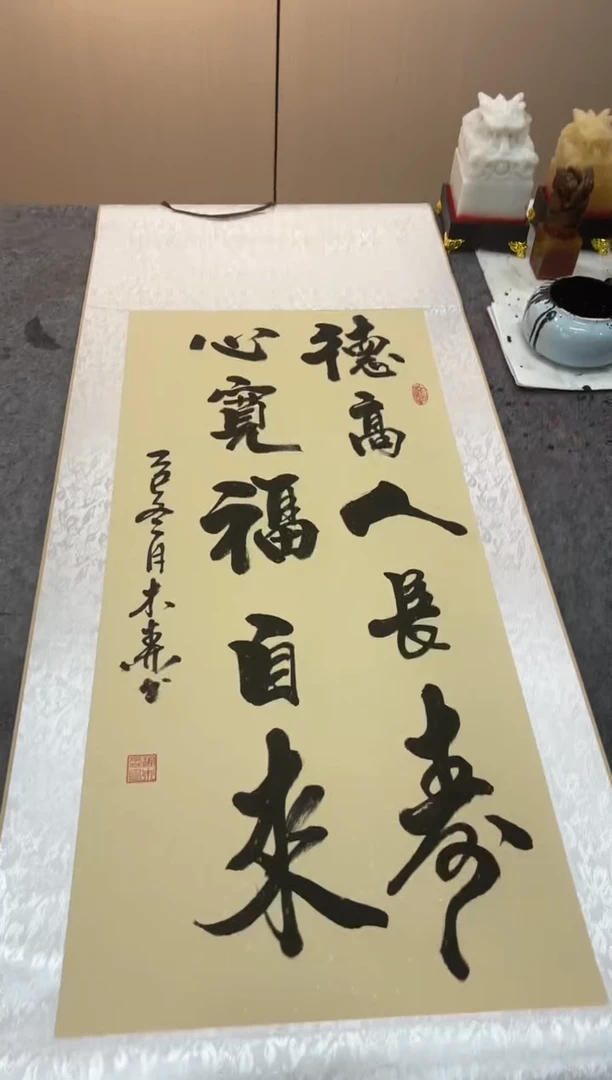 德高人長壽
心寬福自來
乙巳冬月木森書